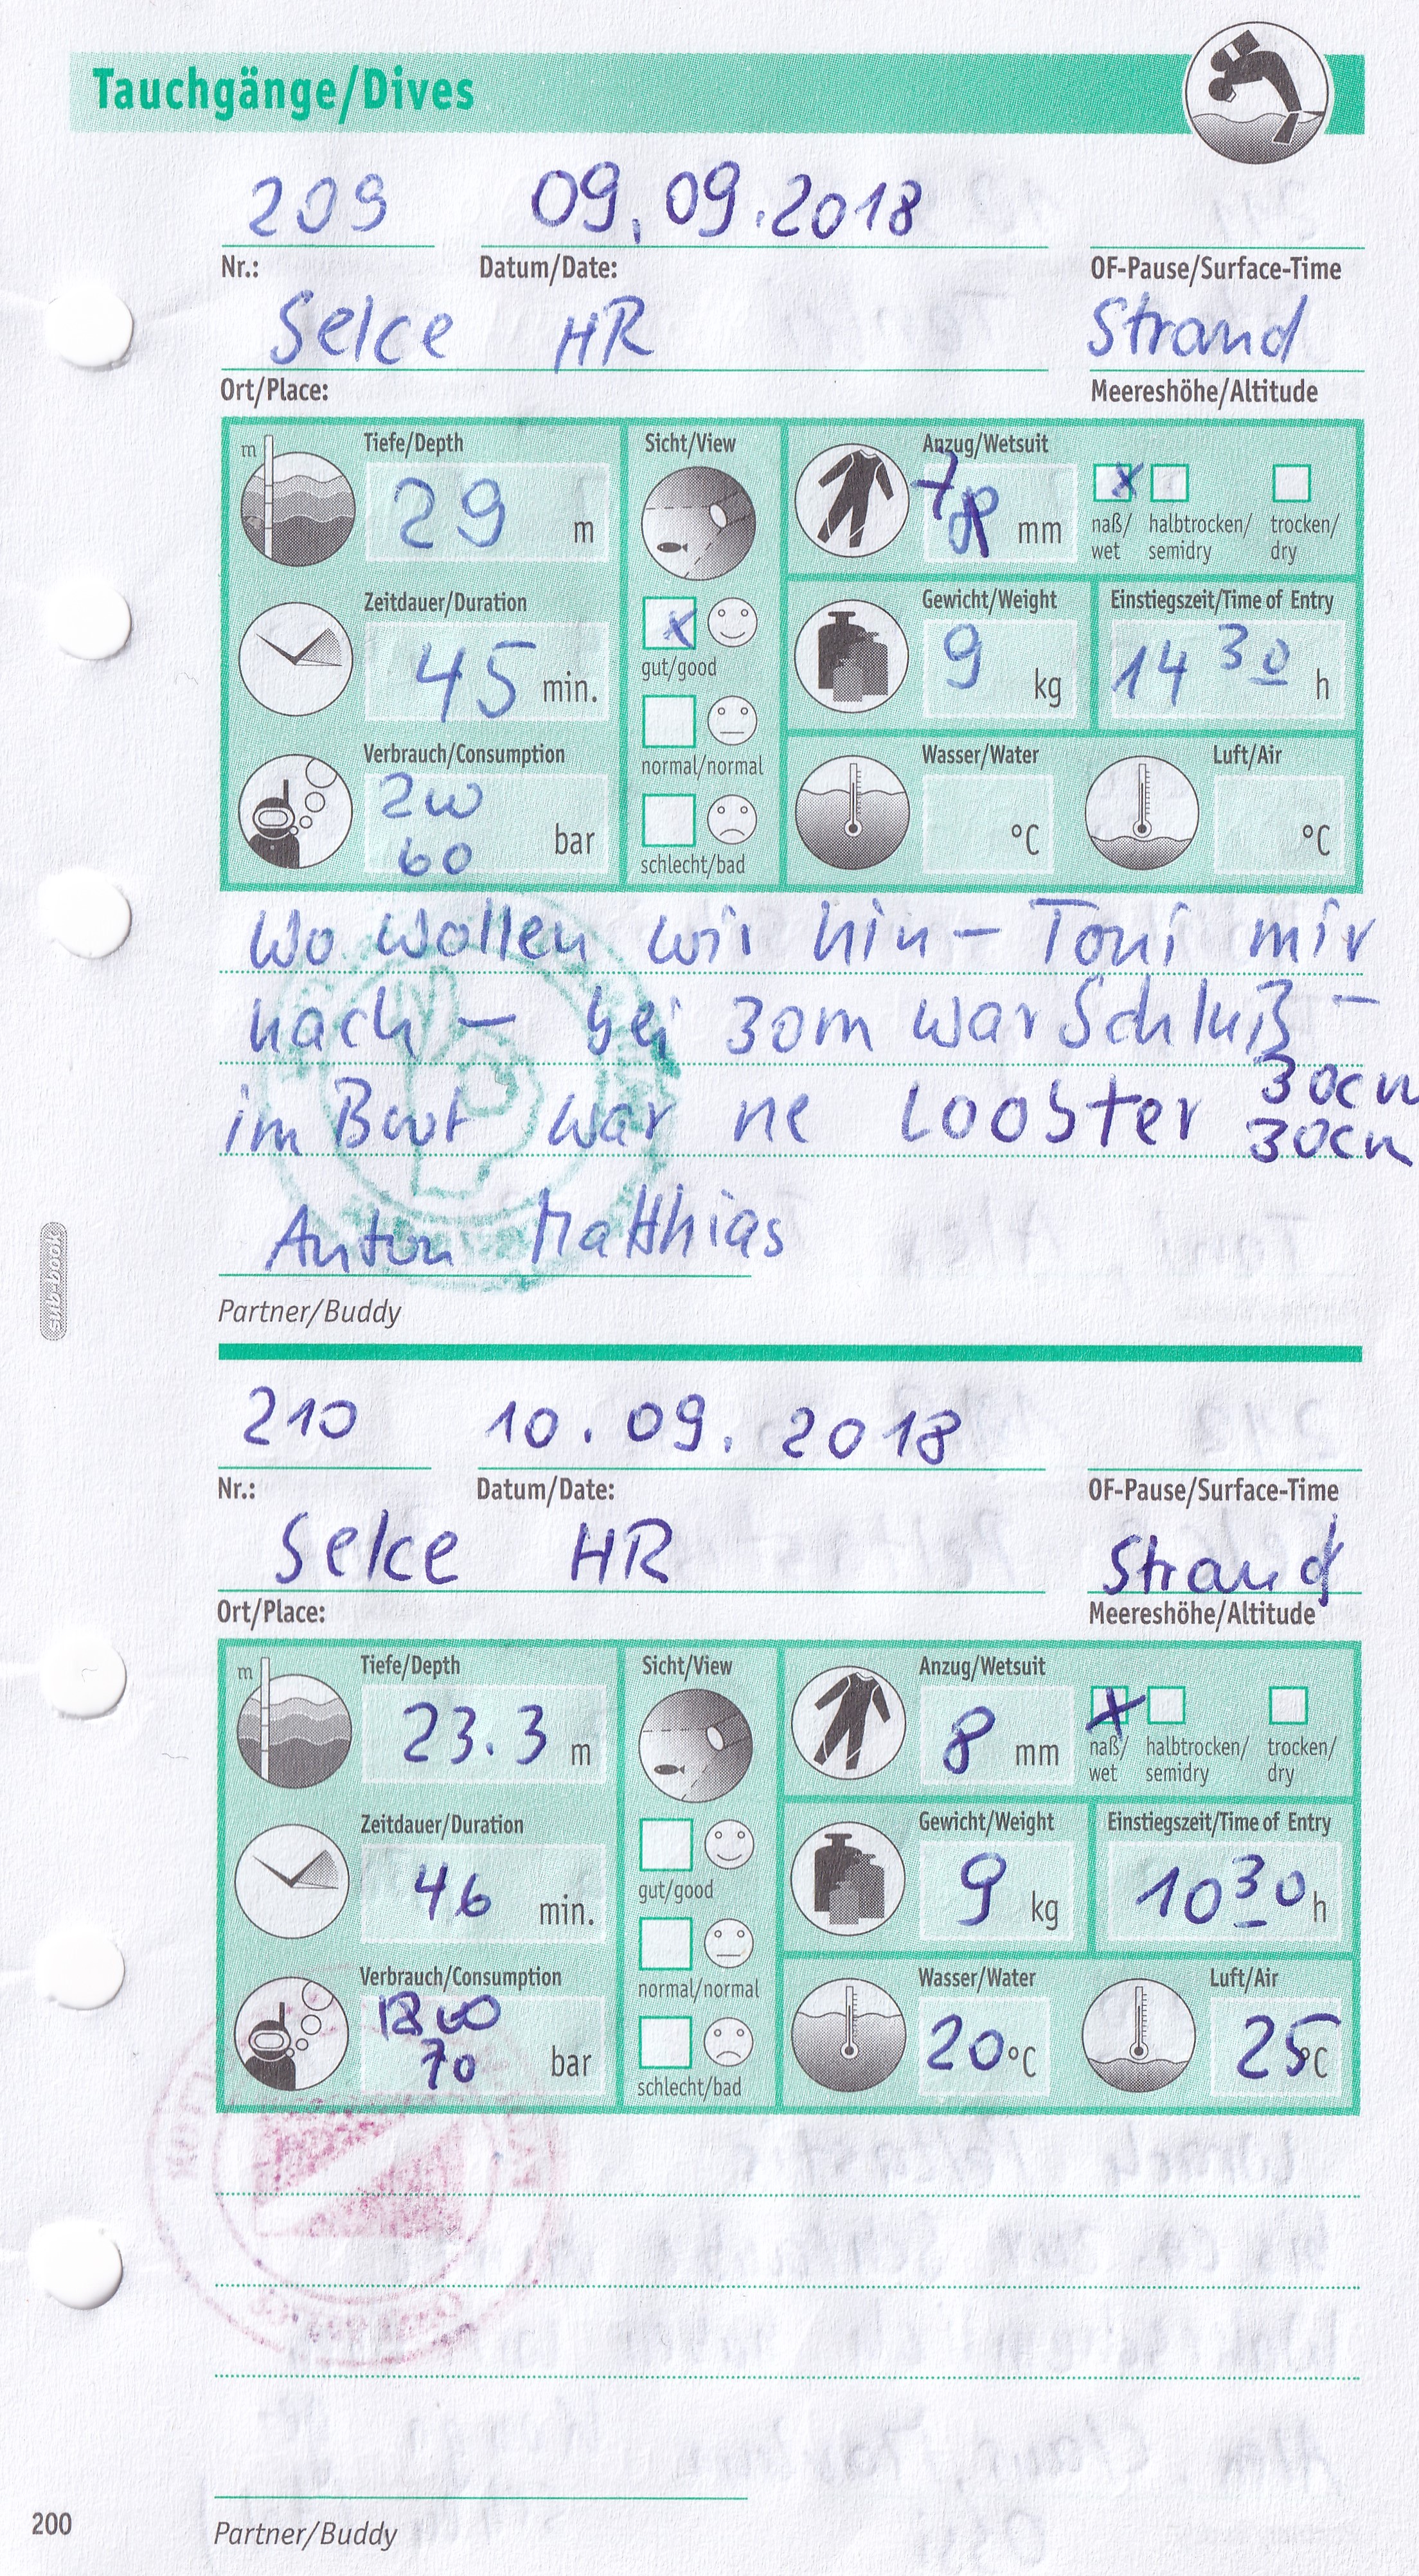 Tauchgänge/Dives
209 09.09.2018
Nr.: Datum/Date: OF-Pause/Surface-Time
Selce HR Strand
Ort/Place: Meereshöhe/Altitude
m Tiefe/Depth Sicht/View Anzug/Wetsuit
29 m 7 mm x
naß/ halbtrocken/ trocken/
wet semidry dry
Zeitdauer/Duration Gewicht/Weight Einstiegszeit/Time of Entry
45 min. x 9 kg 14 30 h
gut/good
normal/normal
Verbrauch/Consumption Wasser/Water Luft/Air
200
60 bar °C °C
schlecht/bad
Wo wollen wir hin – Toni mir
nach – bei 30m war Schluß –
im Boot war ne Loobster 30cm
30cm
Anton Matthias
Partner/Buddy
sub-book
210 10.09.2018
Nr.: Datum/Date: OF-Pause/Surface-Time
Selce HR Strand
Ort/Place: Meereshöhe/Altitude
m Tiefe/Depth Sicht/View Anzug/Wetsuit
23.3 m 8 mm x
naß/ halbtrocken/ trocken/
wet semidry dry
Zeitdauer/Duration Gewicht/Weight Einstiegszeit/Time of Entry
46 min. 9 kg 10 30 h
gut/good
normal/normal
Verbrauch/Consumption Wasser/Water Luft/Air
70 bar 20 °C 25 °C
schlecht/bad
200
Partner/Buddy